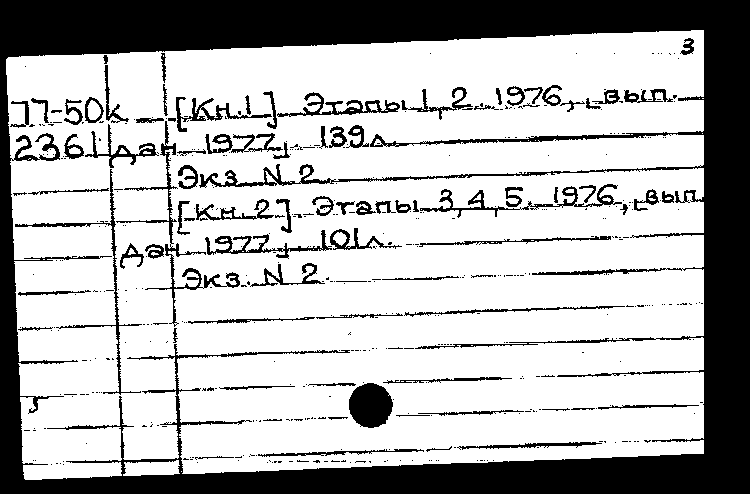 3
77-50к [Кн.1] Этапы 1,2. 1976, [вып.
2361 дан 1977]. 139л.
Экз. N 2.
[Кн.2]. Этапы 3,4,5. 1976, [вып.
дан 1977]. 101л.
Экз. N 2.
5